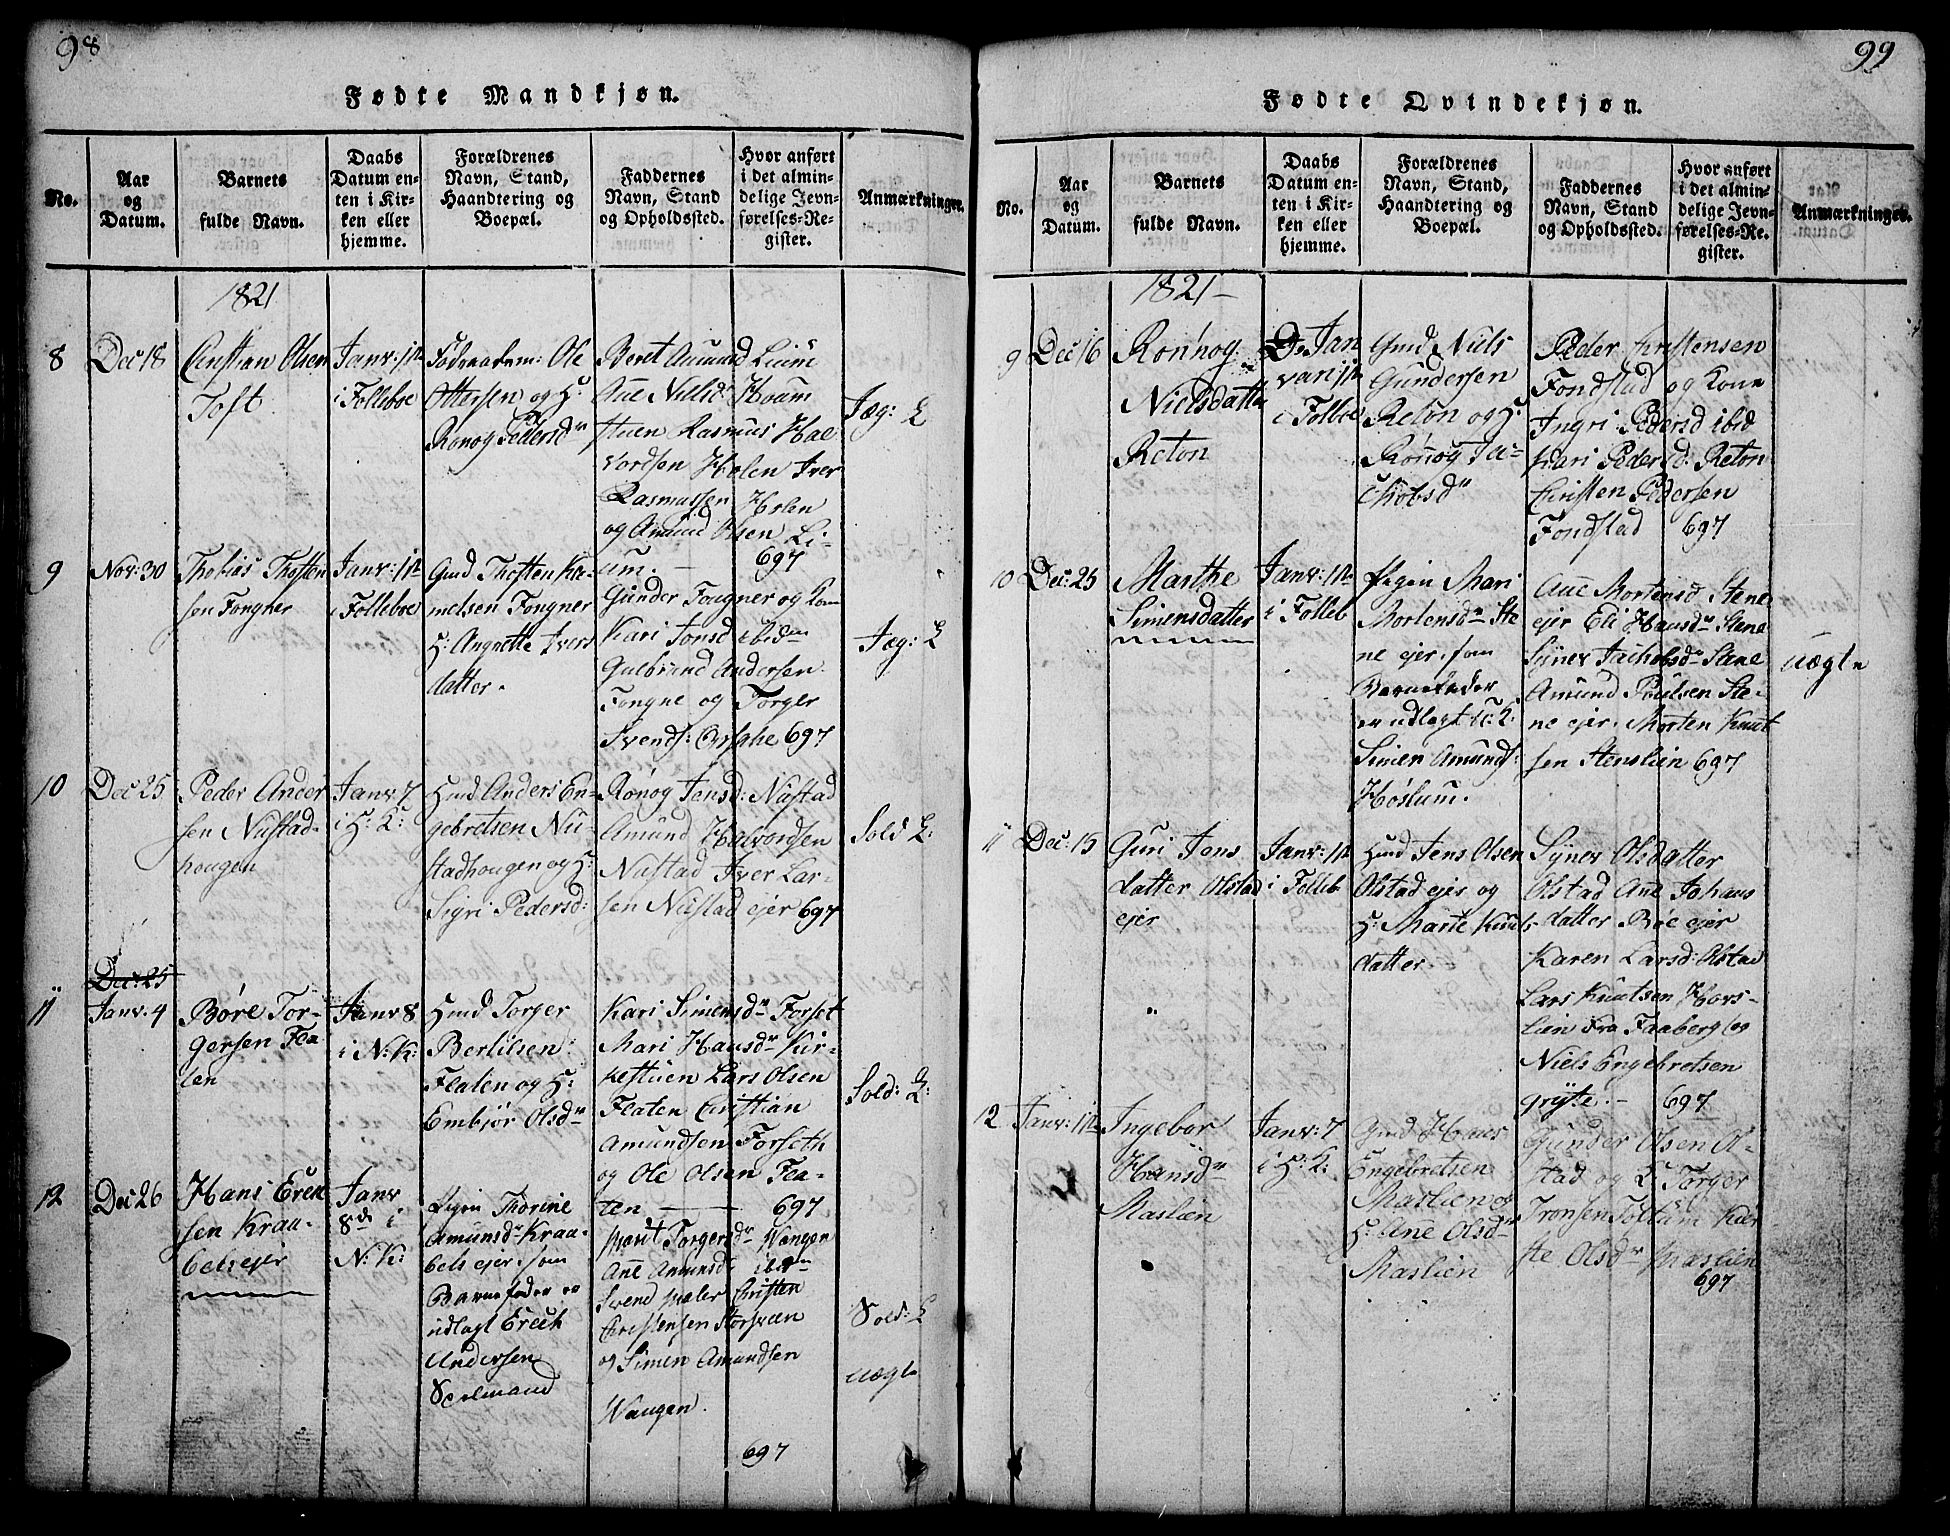 98
Fødte Mandkjøn.
No.
Aar
og
Datum.
Barnets
fulde Navn.
Daabs
Datum en-
ten i Kir-
ken eller
hjemme.
Forældrenes
Navn, Stand,
Haandtering og
Boepæl.
Faddernes
Navn, Stand
og Opholdssted.
Hvor anført
i det almin-
delige Jevn-
førelses-Re-
gister.
Anmærkninger.
1821
8
Dec 18
Christian Olsen
Toft
Janv: 1te
i Folleboe
Ole
Ottersen og H:
Ronog Pedersdr
Beret Amund Lium
Ane Nillsd: Hoam
stuen Rasmus Hal
vordsen Holen Iver
Rasmussen Holen
og Amund Olsen Li-
um. — 697
9
Nov: 30
Thobias Thosten
sen Fongner
Janv: 1te
i Folleboe
Gmd Thosten Ka-
melsen Fongner
H: Angnette Ivers
datter.
Gunder Fougner og Kone
Kari Jonsd ibidm
Gulbrand Andersen
Fongne og Torger
Svends: 697
10
Dec 25
Peder Ander
sen Nustad-
hougen
Janv 7
i H: K:
Hmd Anders En-
gebretsen Nu-
stadhougen og H:
Sigri Pedersd:
Rønog Jensd: Nustad
Amund Halvordsen
Nustad Iver Lar-
sen Nustad ejer 697
Sold
11
Dec: 25
Janv: 4
Børe Tor-
gersen Fla
ten
Janv 8
i N: K:
Hmd Torger
Bertilsen
Flaten og H:
Embiør Olsdr
Kari Simensdr Forset
Mari Hansdr Kir-
kestuen Lars Olsen
Flaten Christian
Amundsen Forseth
og Ole Olsen Fla-
ten — 697
Sold:
12
Dec 26
Hans Erik
sen Kraa-
bels ejer
Janv
8de i
N: K:
Pigen Thorine
Amunsdr Kraa-
bels ejer, som
Barnefader er
udlagt Erich
Andersen
Spelmand
Marit Torgersdr Wangen
Ane Amunsd: ibidm
Svend Maler Christen
Christensen Storsveen
og Simen Amundsen
Wangen.
697
Sold:
uægte
99
Fødte Qvindekjøn.
No.
Aar
og
Datum.
Barnets
fulde Navn.
Daabs
Datum en-
ten i Kir-
ken eller
hjemme.
Forældrenes
Navn, Stand,
Haandtering og
Boepæl.
Faddernes
Navn, Stand
og Opholdssted.
Hvor anført
i det almin-
delige Jevn-
førelses-Re-
gister.
Anmærkninger.
1821 —
9
Dec 16
Rønnog
Nielsdatter
Reton
Jan
vari 1te
i Folleboe
Gmd Niels
Gundersen
Reton og H:
Rønog Ja-
chobsdr
Peder Christensen
Fondstad og Kone
Ingri Pedersd ibid
Kari Pedersd: Reton
Christen Pedersen
Fondstad 697
10
Dec: 25
Marthe
Simensdatter
Janv: 1te
i Folleb
Pigen Mari
Mortensdr Ste
ne ejer, som
Barnefader
er udlagt
Simen Amunds:
Høslum.
Ane Mortensd Stene
ejer Eli Hansdr Stene
Synev Jachobsdr Stene
Amund Poulsen Ste-
ne ejer. Morten Knut
sen Stenslien 697
uægte
11
Dec: 15
Guri Jens
datter Olstad
ejer
Janv: 1te
i Folleb
Hmd Jens Olsen
Olstad ejer og
H: Marte Knuts
datter
Synev Olsdatter
Olstad Ane Johans
datter Bøe ejer
Karen Larsd: Olstad
Lars Knutsen Hovs-
lien fra Faaberg og
Niels Engebretsen
gryte. — 697
12
Janv: 1te
Ingebor
Hansdr
Maslien
Janv: 7
i H: K:
Gmd Hans
Engebretsen
Maslien og
H: Ane Olsdr
Maslien
Gunder Olsen Ol-
stad og Torger
Tronsen Toltum Kier
ste Olsdr Maslien
697